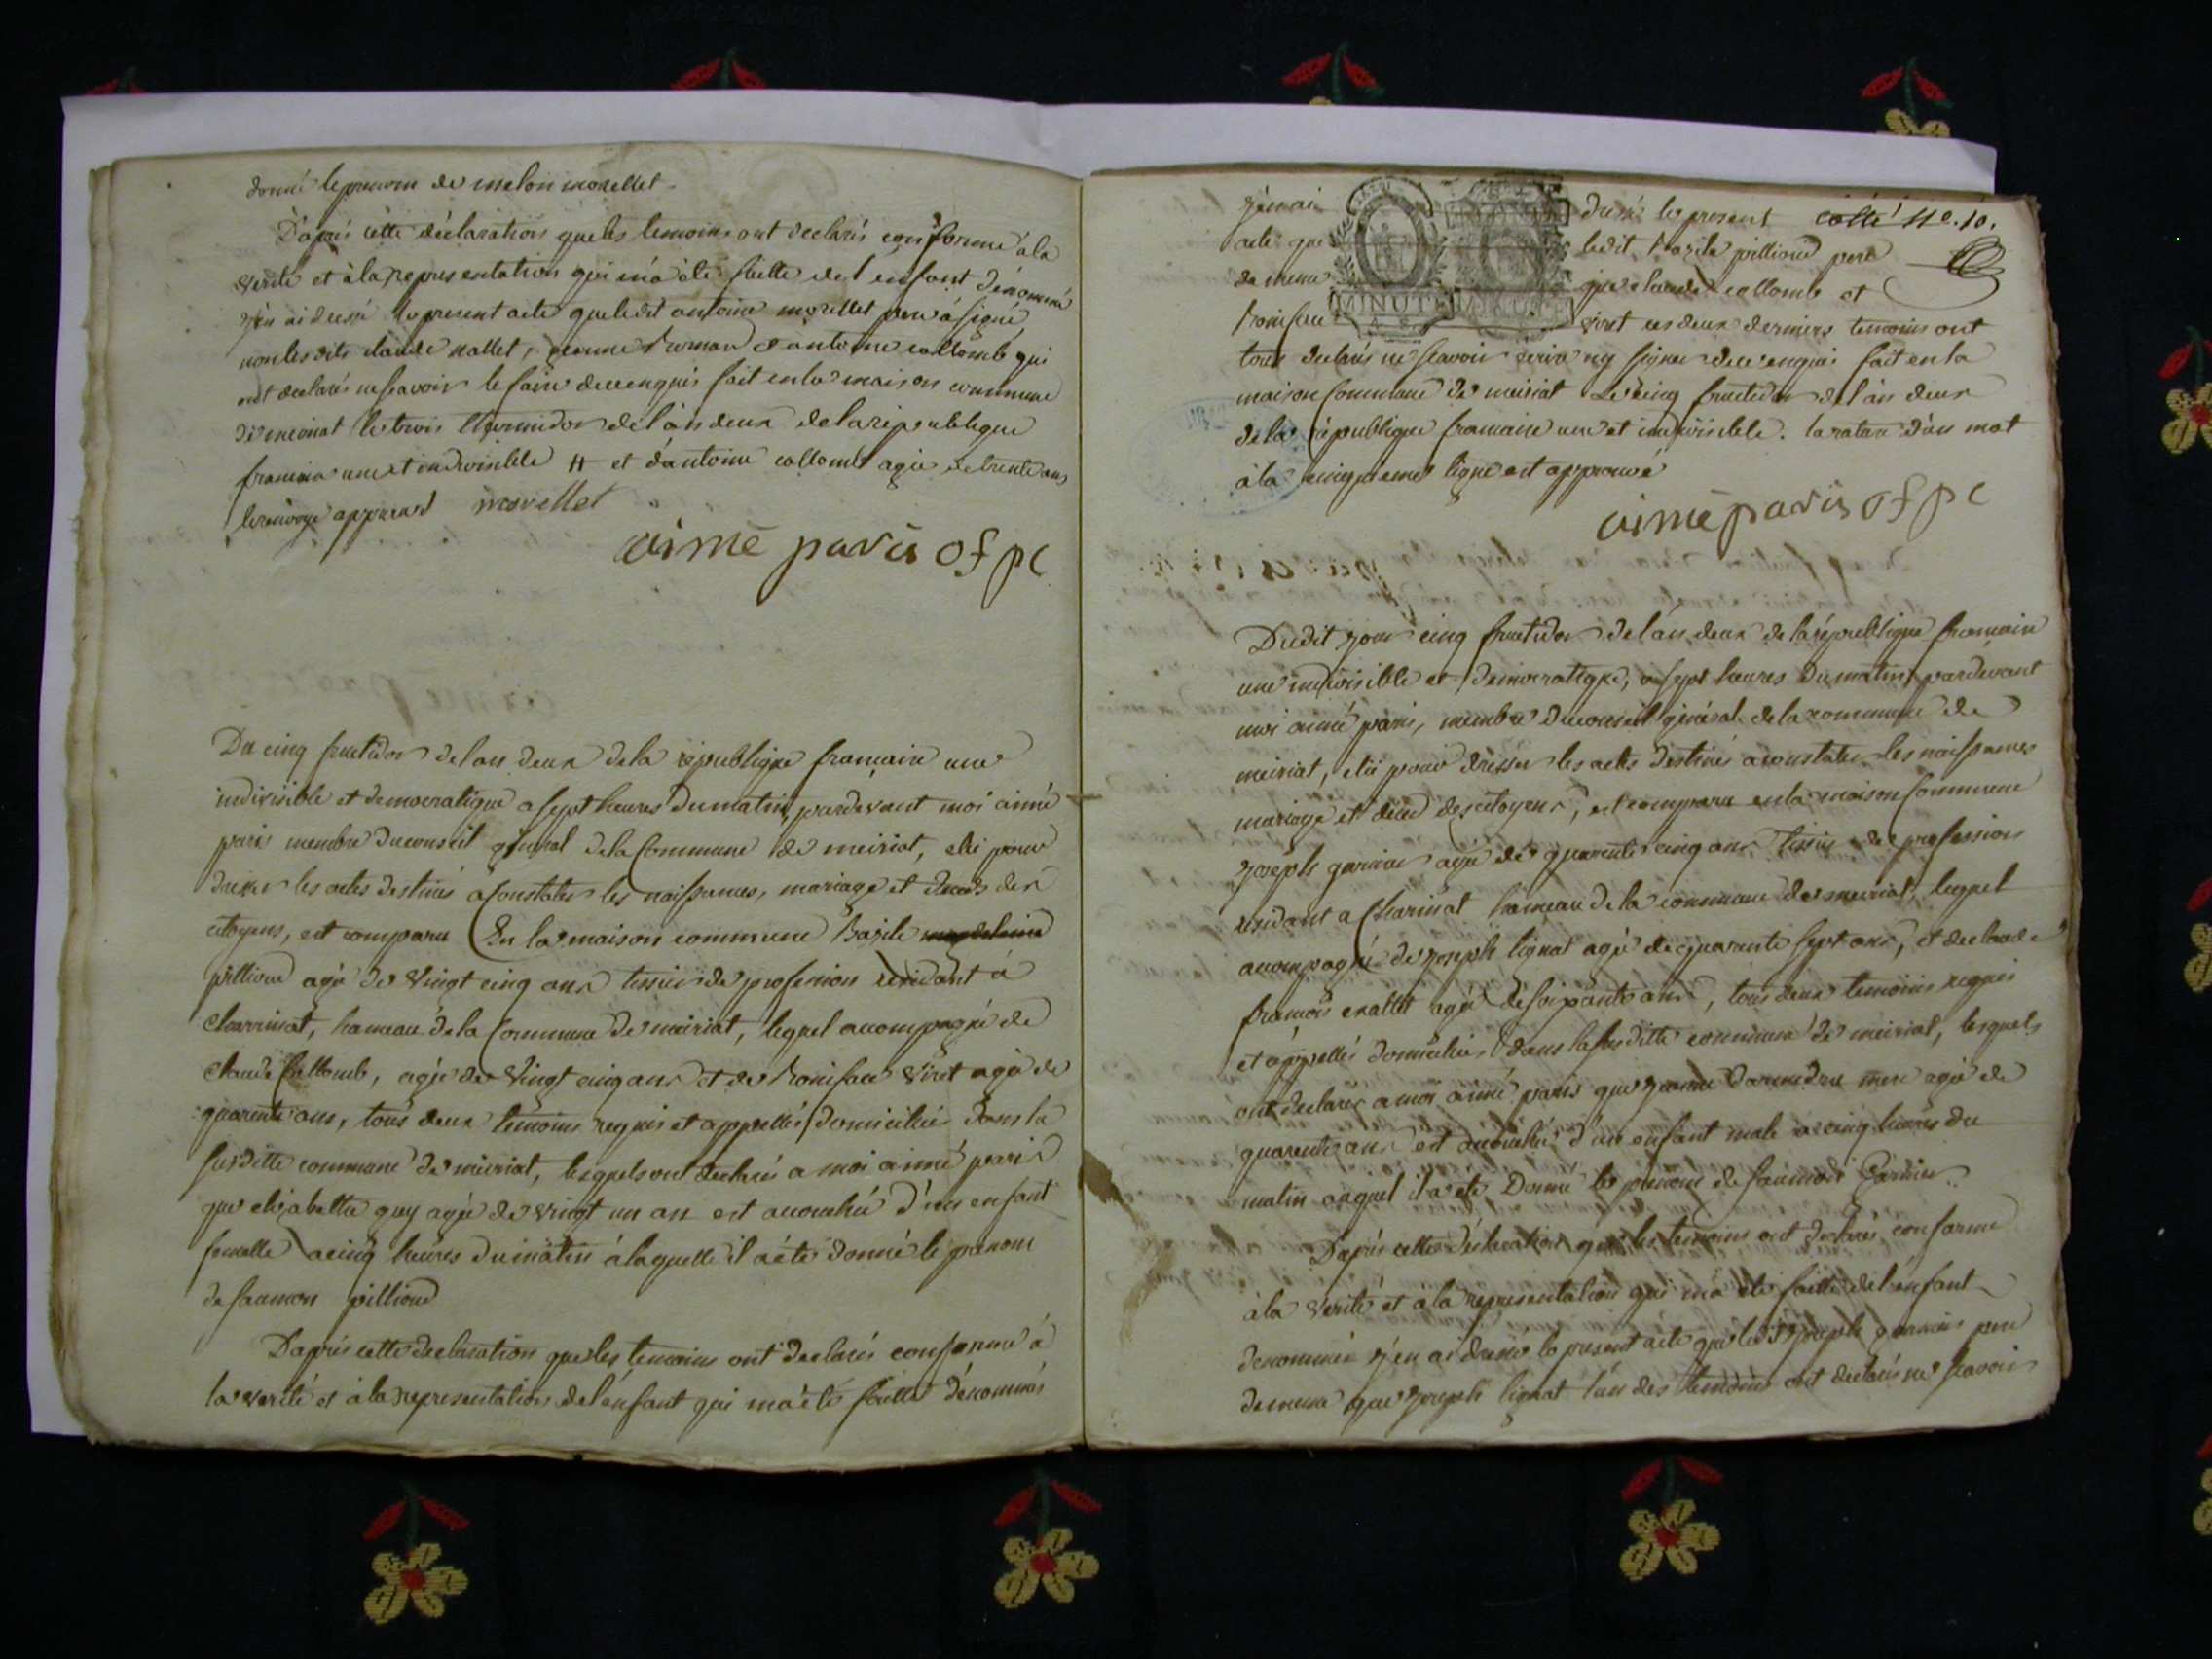 donné le prenom de melon morellet
D'aprés cette déclaration que les temoins ont declarés conforme à la
verité et à la representation qui m'a été faitte de l'énfant dénommé
j'en ai dressé le present acte que ledit antoine morellet pere a signé
non lesdits claude mallet, et antoine collomb qui
ont declarés ne scavoir le faire de ce enquis fait en la maison commune
de meiriat le trois thermidor de l'an deux de la republique
francaise une et indivisible # et d'antoine collomb agé de trente ans
le renvoye approuvé morellet
aimé paris of pc
Du cinq fructidor de l'an deux de la république francaise une
indivisible et democratique a sept heures du matin, pardevant moi aimé
paris membre du conseil général de la Commune de meiriat, elu pour
dresser les actes destinés a Constater les naissances, mariage et deces des
citoyens, est comparu En la maison commune Bazile magdelaine
pillioud agé de vingt cinq ans tissier de profession residant à
Charrinat, hameau de la Commune de meiriat, lequel accompagné de
Claude Collomb, agé de vingt cinq ans et de Boniface viret agé de
quarente ans, tous deux témoins requis et appellés domiciliés dans la
susditte commune de meiriat, lesquels ont declarés a moi aimé paris
que elizabethe guy agée de vingt un an est accouchée d'un enfant
femelle a cinq heures du matin à laquelle il a été donné le prenom
de saumon pillioud
D'aprés cette declaration que les temoins ont declarés conforme à
la verité et à la representation de l'enfant qui m'a été faitte dénommés
j'en ai dressé le present cotté n°. 10.
acte que ledit Bazile pillioud pere
de meme que claude collomb et
Boniface viret ces deux derniers temoins ont
tous declarés ne scavoir ecrire ny signer de ce enquis fait en la
maison Commune de meiriat Le cinq fructidor de l'an deux
de la république francaise une et indivisible. la rature d'un mot
à la cinquieme ligne est approuvé
MINUTE MINUTE
aimé paris of pc
Dudit jour cinq fructidor de l'an deux de la république francaise
une indivisible et democratique, a sept heures du matin, pardevant
moi aimé paris, membre du conseil général de la commune de
meiriat, elu pour dresser les actes destinés a constater les naissances
mariage et décès des citoyens, est comparu en la maison Commune
joseph garnier agé de quarente cinq ans tissier de profession
residant a Charinat hameau de la commune de meiriat, lequel
accompagné de joseph lignat agé de quarente sept ans, et de claude
francois mallet agé de soixante ans, tous deux temoins requis
et appellés domiciliés dans la susditte commune de meiriat, lesquels
ont declarés a moi aimé paris que jeanne mere agée de
quarente ans est accouchée d'un enfant male a cinq heures du
matin auquel il a été Donné le prenom de saumon Garnier.
D'aprés cette déclaration que les temoins ont declarés conforme
à la verité et à la representation qui m'a été faitte de l'énfant
denommée j'en ai dressé le present acte que ledit joseph garnier pere
de meme que joseph lignat l'un des temoins ont declarés ne scavoir